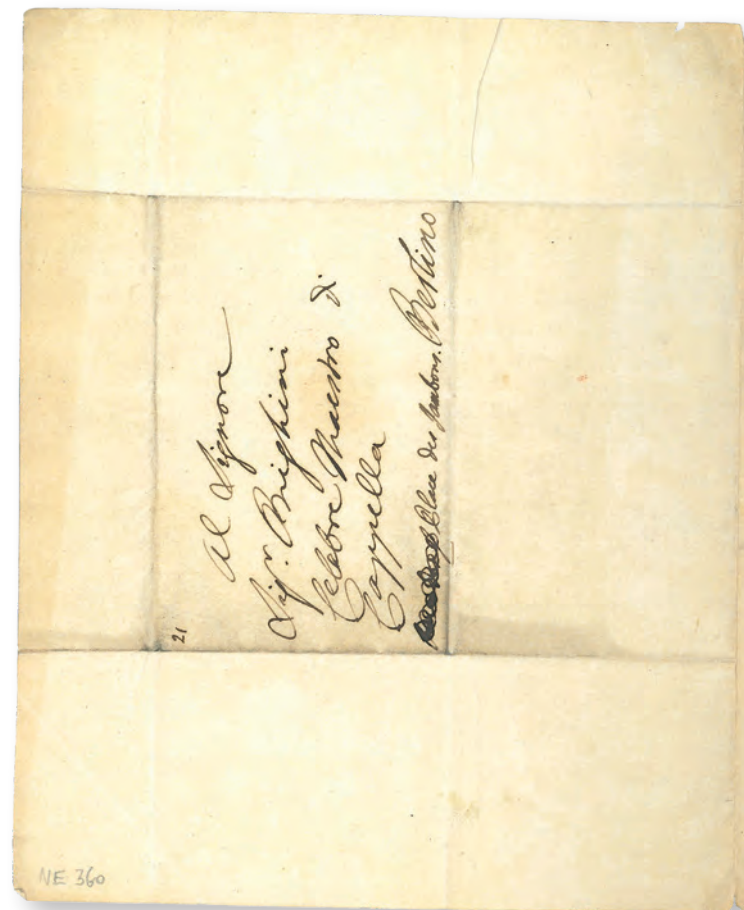 21
Al Signore
Sigr. Brighini
Celebre Maestro di
Cappella
Place des Jambons. Berlino
NE 360